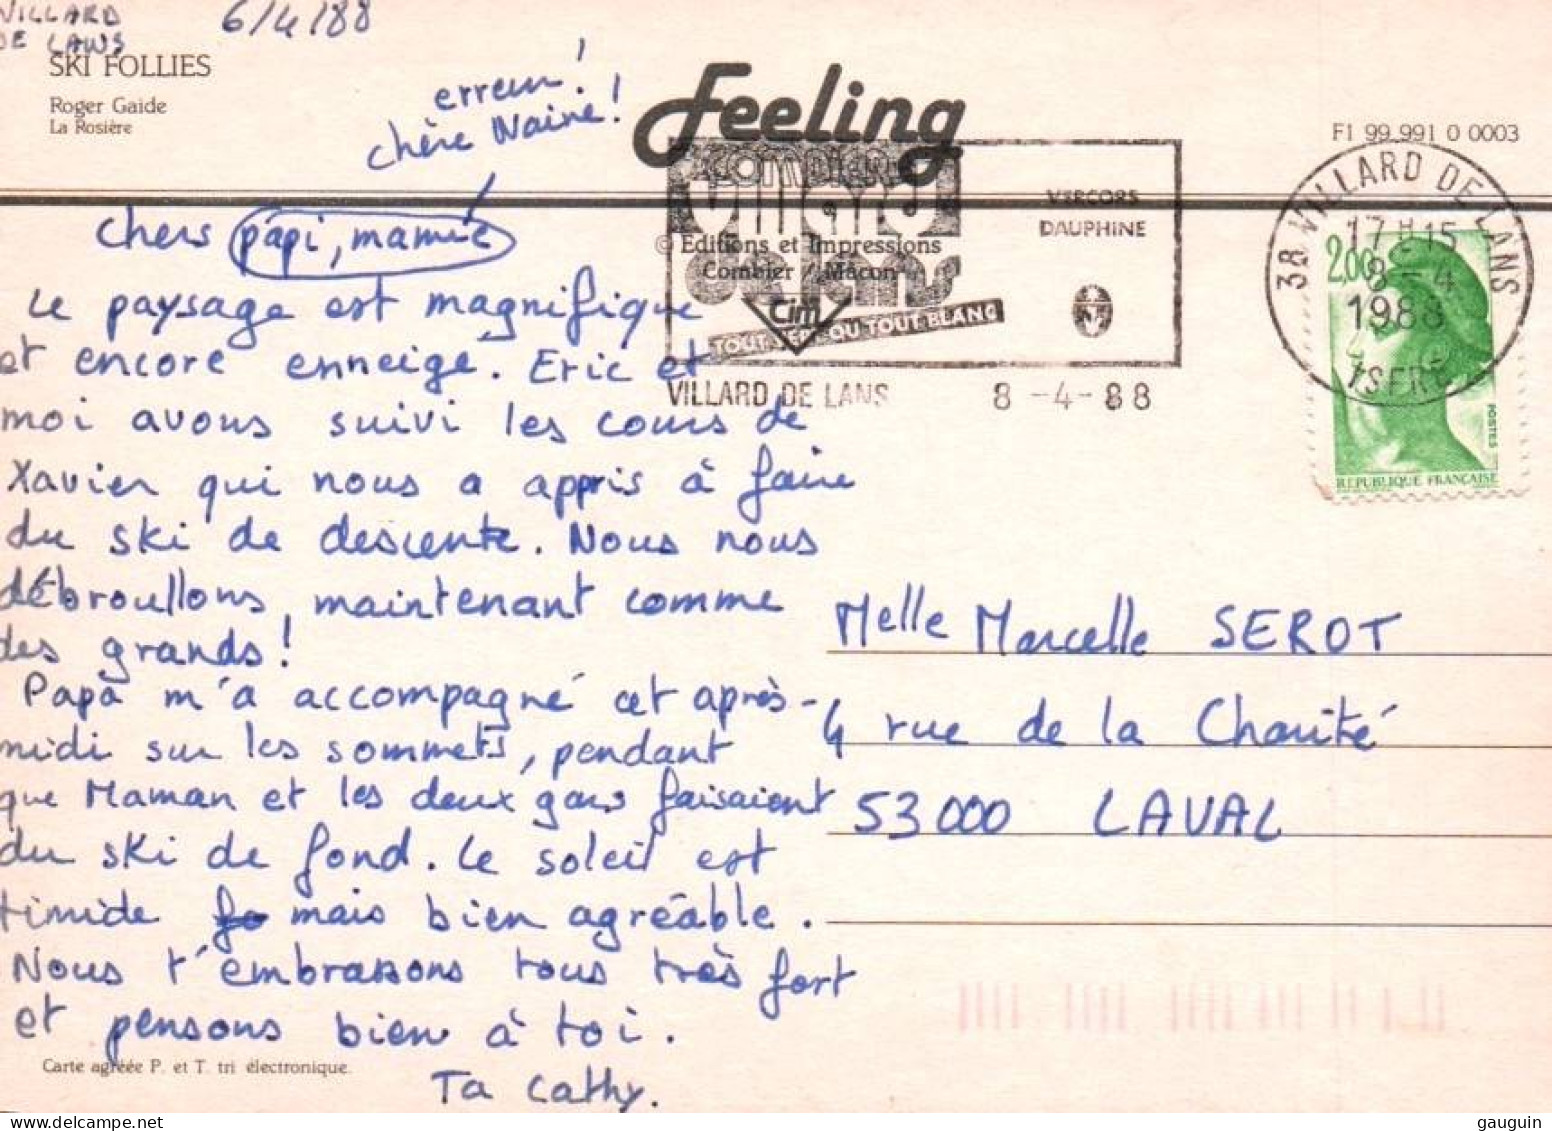 VILLARD
DE LANS
6/4/88
SKI FOLLIES
Roger Gaide
La Rosière
erreur!
chère Naine!
Feeling
COMBIER
© Editions et Impressions
Combier / Mâcon
Cim
villard
de lans
TOUT VERT OU TOUT BLANC
VERCORS
DAUPHINE
VILLARD DE LANS 8-4-88
F1 99.991 0 0003
38 VILLARD DE LANS
17 H 15
8-4
1988
ISERE
2,00
POSTES
REPUBLIQUE FRANÇAISE
Chers papi, mamie
Le paysage est magnifique
et encore enneigé. Eric et
moi avons suivi les cours de
Xavier qui nous a appris à faire
du ski de descente. Nous nous
débrouillons, maintenant comme
des grands!
Papa m'a accompagné cet après-
midi sur les sommets, pendant
que Maman et les deux gars faisaient
du ski de fond. Le soleil est
timide mais bien agréable.
Nous t'embrassons tous très fort
et pensons bien à toi.
Ta Cathy.
Melle Marcelle SEROT
4 rue de la Charité
53000 LAVAL
Carte agréée P. et T. tri électronique.
gauguin